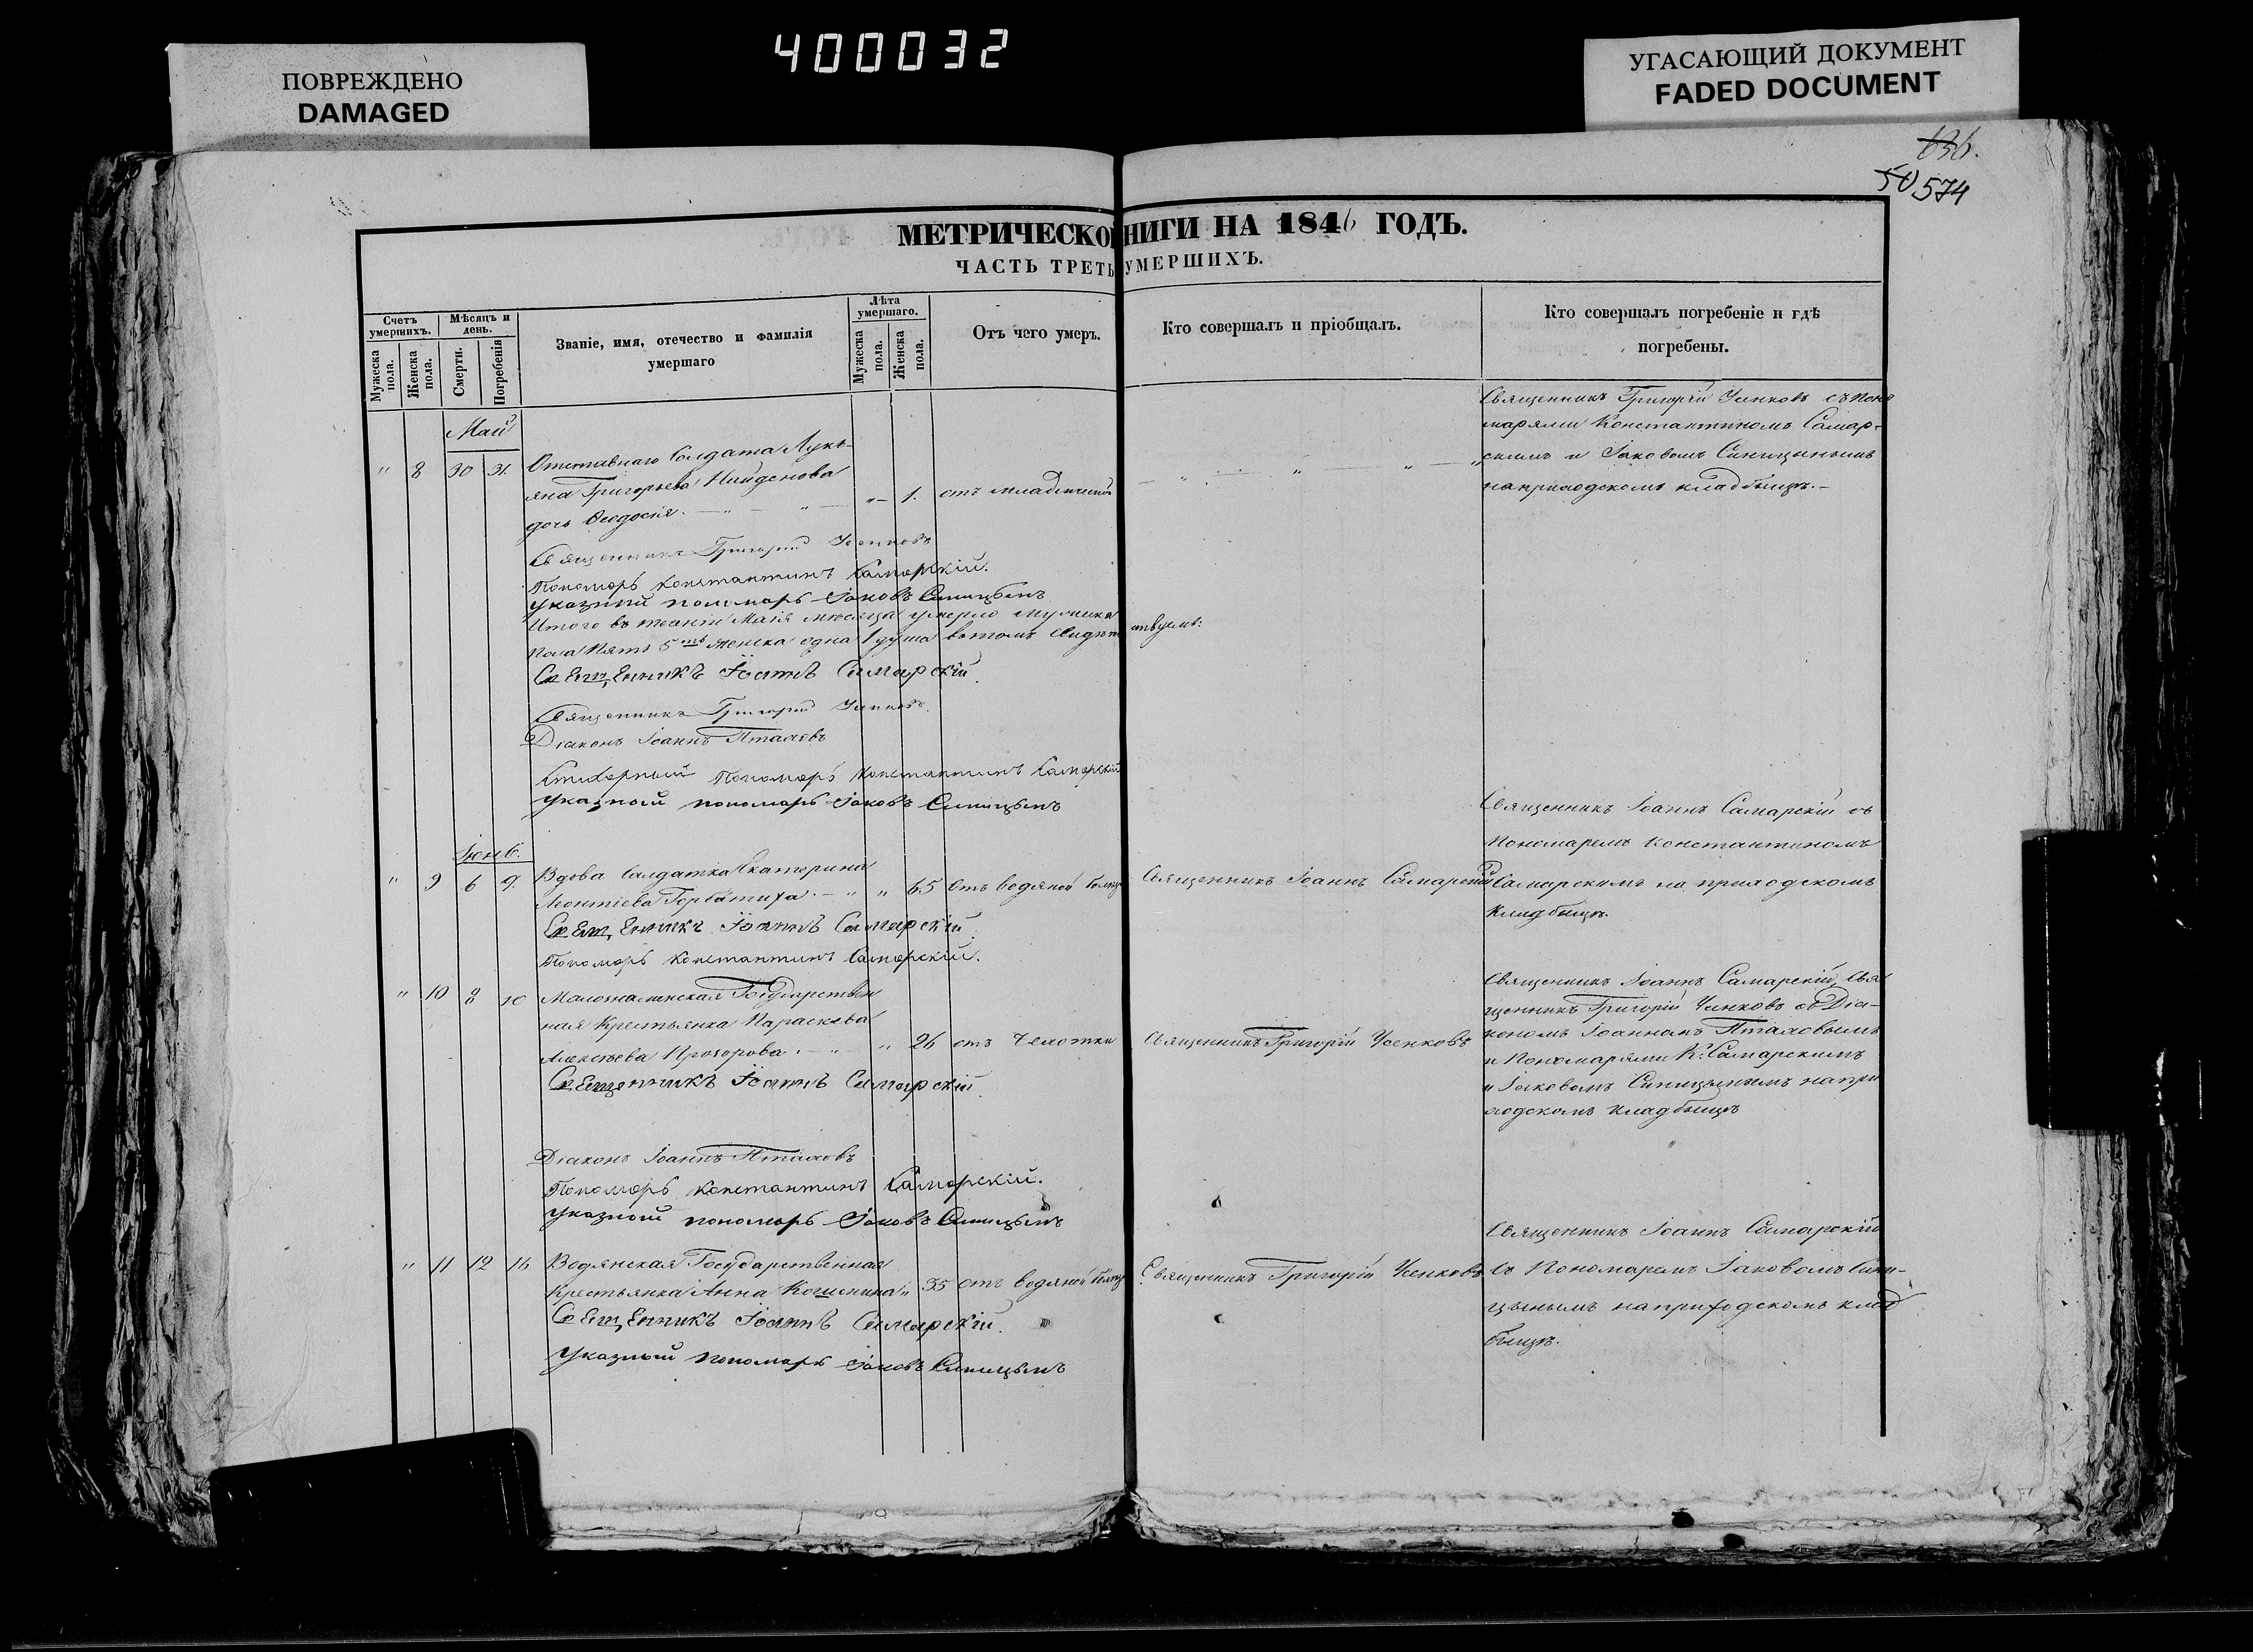 ПОВРЕЖДЕНО
DAMAGED
400032
УГАСАЮЩИЙ ДОКУМЕНТ
FADED DOCUMENT
636.
50 574
МЕТРИЧЕСКО НИГИ НА 1846 ГОДЪ.
ЧАСТЬ ТРЕТЬ УМЕРШИХЪ.
Счетъ умершихъ.
Мужеска пола.
Женска пола.
Мѣсяцъ и день.
Смерти.
Погребенія
Званіе, имя, отечество и фамилія
умершаго
Лѣта умершаго.
Мужеска пола.
Женска пола.
Отъ чего умеръ.
Кто совершалъ и пріобщалъ.
Кто совершалъ погребеніе и гдѣ
погребены.
Май
" 8 30 31.
Отставнаго Солдата Лукь-
яна Григорьева Найденова
дочь Ѳеодосія. — " — " —
" 1. отъ младенческой
— " — " — "
Священникъ Григорій Усенковъ съ поно
марями Константиномъ Самар-
скимъ и Іаковомъ Синицынымъ
на приходскомъ кладбищѣ.—
Священникъ Григорій Усенковъ
Пономарь Константинъ Самарскій.
Указный пономарь Іаковъ Синицынъ
Итого въ теченіи Маія мѣсяца умерло мужеска
пола пять 5ть женска одна 1 душа въ томъ свидѣте ствуемъ:
Священникъ Іоаннъ Самарскій.
Священникъ Григорій Усенковъ.
Діаконъ Іоаннъ Птаховъ
Стихарный Пономарь Константинъ Самарскій
Указный пономарь Іаковъ Синицынъ
Іюнь.
" 9 6 9.
Вдова Салдатка Екатерина
Леонтіева Горбатиха. — " " 65 Отъ водяной болѣзн
Священникъ Іоаннъ Самарскій
Священникъ Іоаннъ Самарскій съ
Пономаремъ Константиномъ
Самарскимъ на приходскомъ
Кладбищѣ.
Священникъ Іоаннъ Самарскій
Пономарь Константинъ Самарскій.
" 10 8 10
Малознаменская Государствен
ная Крестьянка Параскева
Алексѣева Прозорова. — " — " 26 отъ Чехотки
Священникъ Григорій Усенковъ
Священникъ Іоаннъ Самарскій, Свя
щенникъ Григорій Усенковъ съ Діа-
кономъ Іоанномъ Птаховымъ
и Пономарями К. Самарскимъ
и Іаковомъ Синицынымъ на при
ходскомъ кладбищѣ
Священникъ Іоаннъ Самарскій.
Діаконъ Іоаннъ Птаховъ
Пономарь Константинъ Самарскій.
Указный пономарь Іаковъ Синицынъ
" 11 12 14
Водянская Государственная
Крестьянка Анна " 35 отъ водяной болѣзн
Священникъ Григорій Усенковъ
Священникъ Іоаннъ Самарскій
съ Пономаремъ Іаковомъ Сини-
цынымъ на приходскомъ клад
бищѣ.
Священникъ Іоаннъ Самарскій.
Указный пономарь Іаковъ Синицынъ